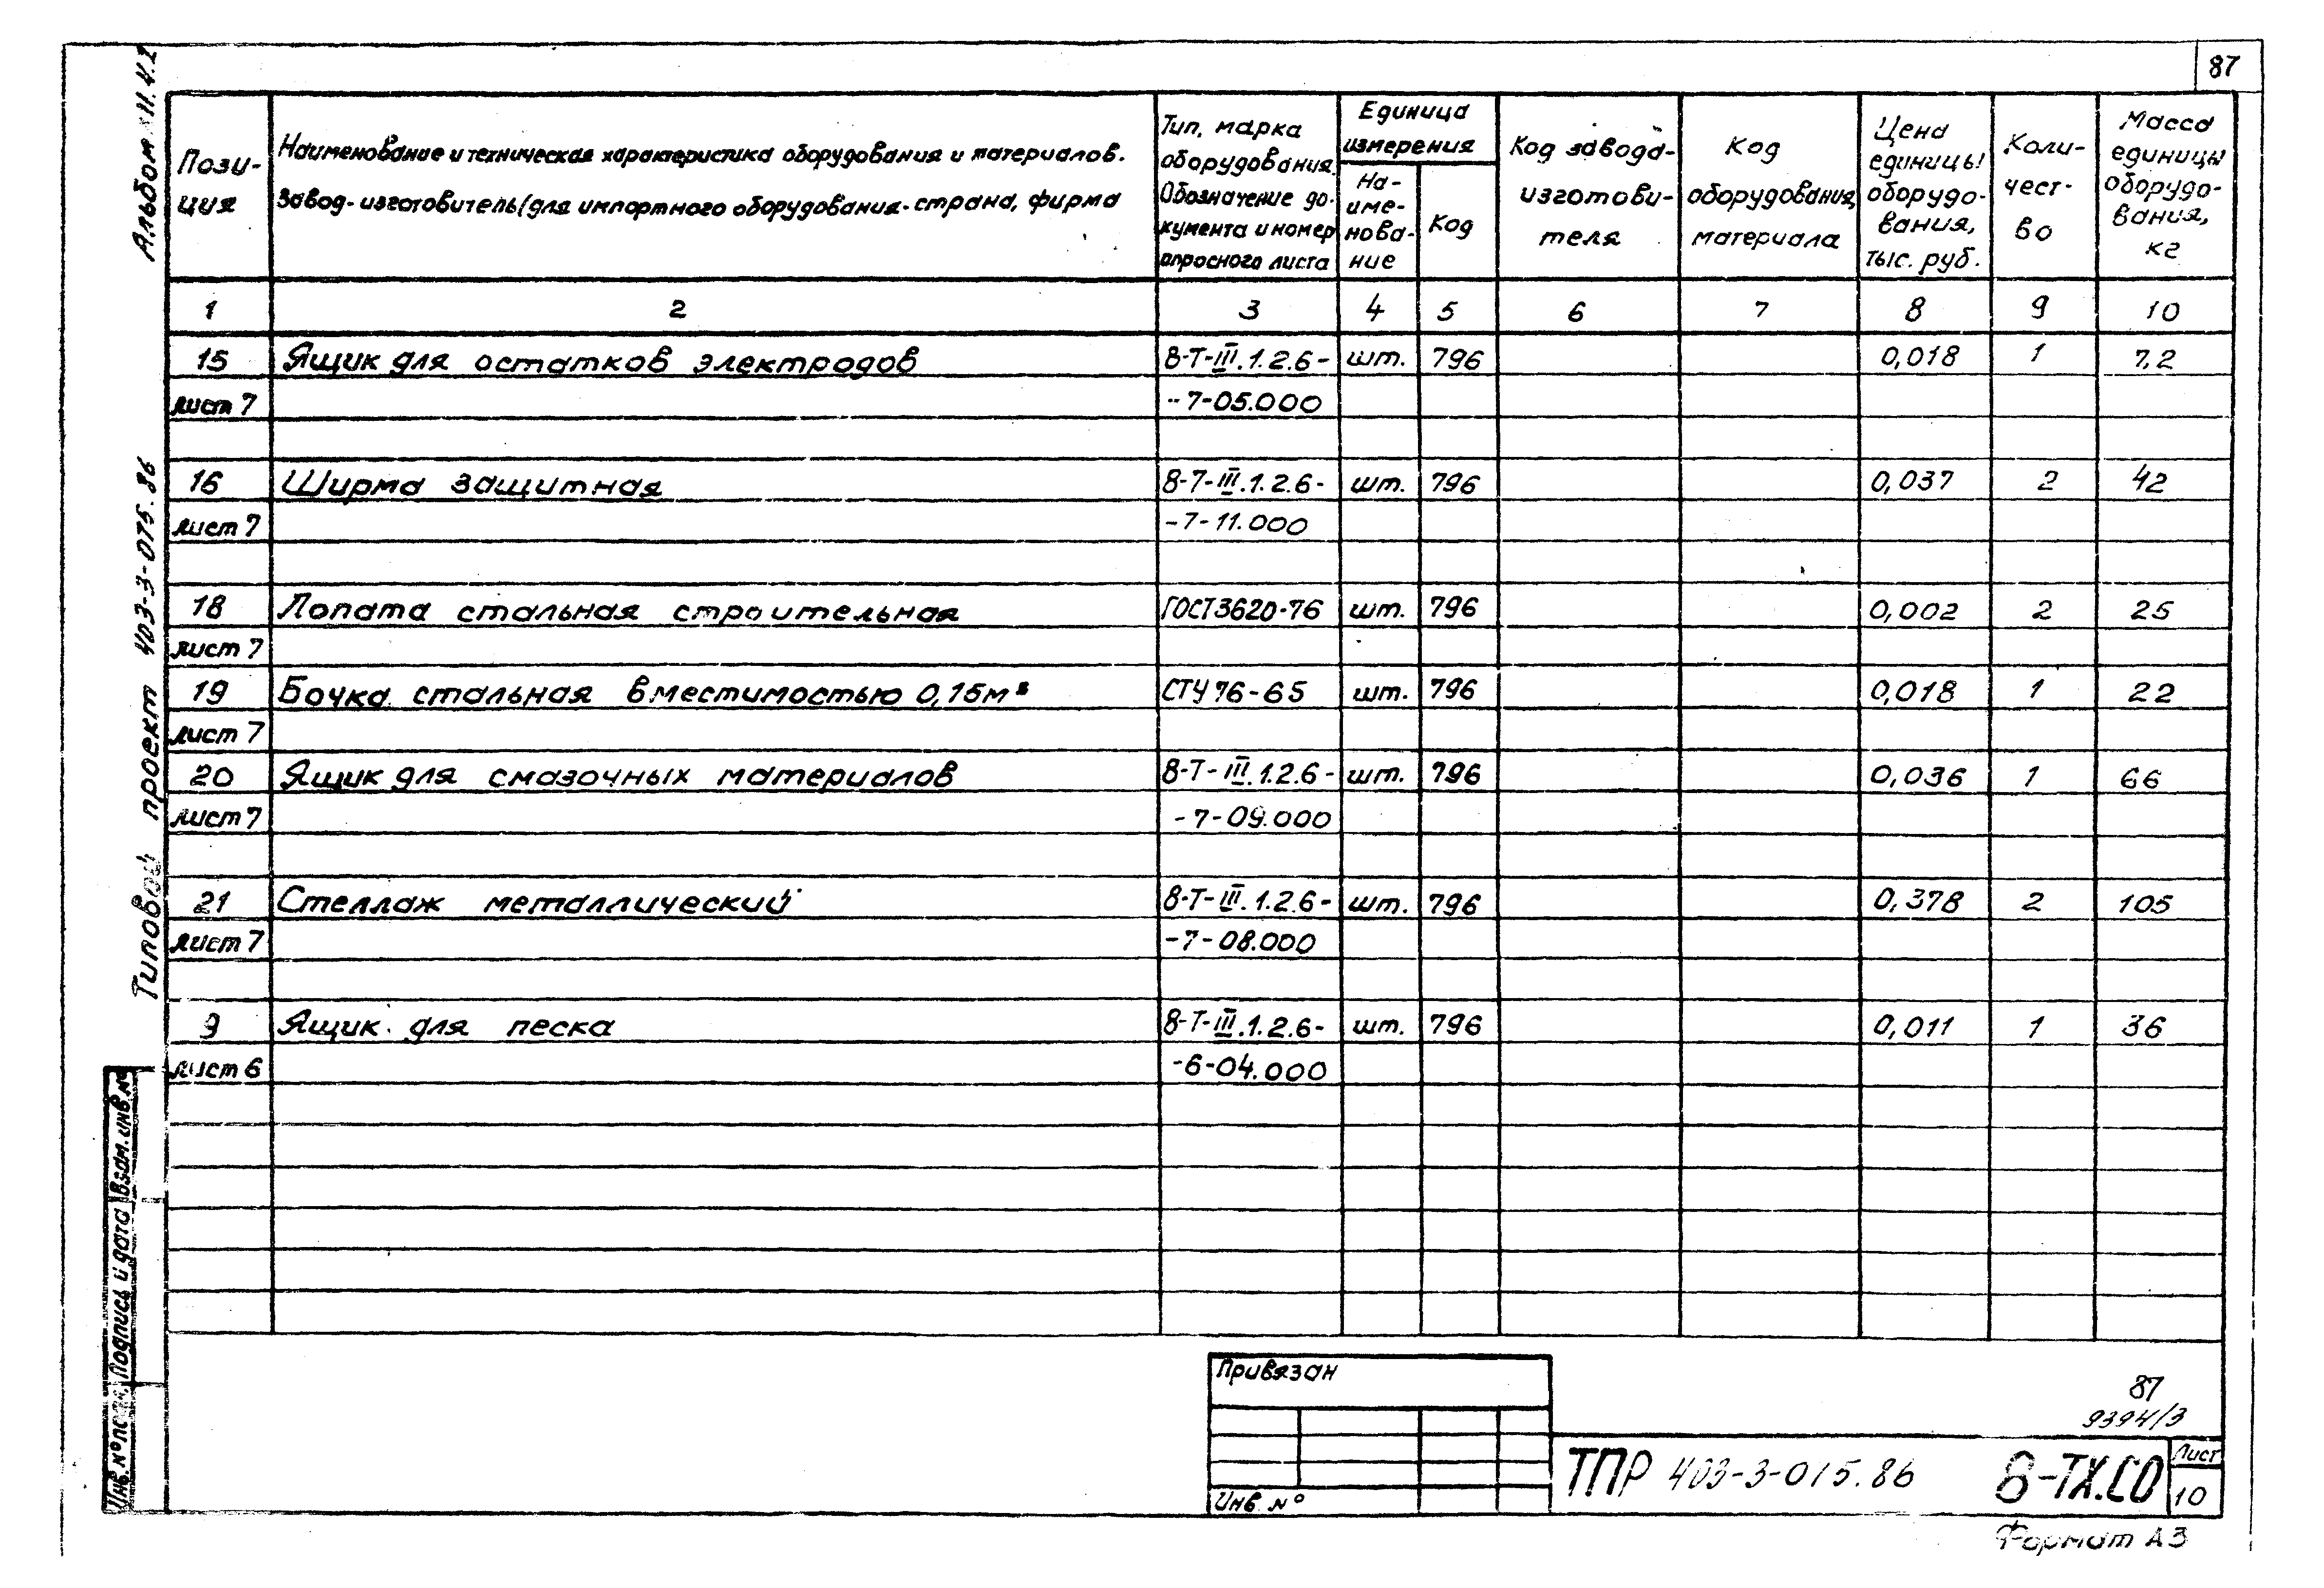 87
Альбом II.4.1
Типовой проект 403-3-075.86
Пози-ция
Наименование и техническая характеристика оборудования и материалов.
Завод-изготовитель (для импортного оборудования-страна, фирма
Тип, марка оборудования. Обозначение до-кумента и номер опросного листа
Единица измерения
На-име-нова-ние
Код
Код завода-изготови-теля
Код оборудования, материала
Цена единицы оборудо-вания, тыс. руб.
Коли-чест-во
Масса единицы оборудо-вания, кг
1 2 3 4 5 6 7 8 9 10
15 Ящик для остатков электродов 8-Т-III.1.2.6- шт. 796 0,018 1 7,2
лист 7 -7-05.000
16 Ширма защитная 8-7-III.1.2.6- шт. 796 0,037 2 42
лист 7 -7-11.000
18 Лопата стальная строительная ГОСТ3620-76 шт. 796 0,002 2 25
лист 7
19 Бочка стальная вместимостью 0,15м³ СТУ 76-65 шт. 796 0,018 1 22
лист 7
20 Ящик для смазочных материалов 8-Т-III.1.2.6- шт. 796 0,036 1 66
лист 7 -7-09.000
21 Стеллаж металлический 8-Т-III.1.2.6- шт. 796 0,378 2 105
лист 7 -7-08.000
9 Ящик для песка 8-Т-III.1.2.6- шт. 796 0,011 1 36
лист 6 -6-04.000
Взам. инв. №
Подпись и дата
Инв. № подл.
Привязан
Инв. №
87
9394/3
ТПР 403-3-015.86 8-ТХ.СО
Лист
10
Формат А3